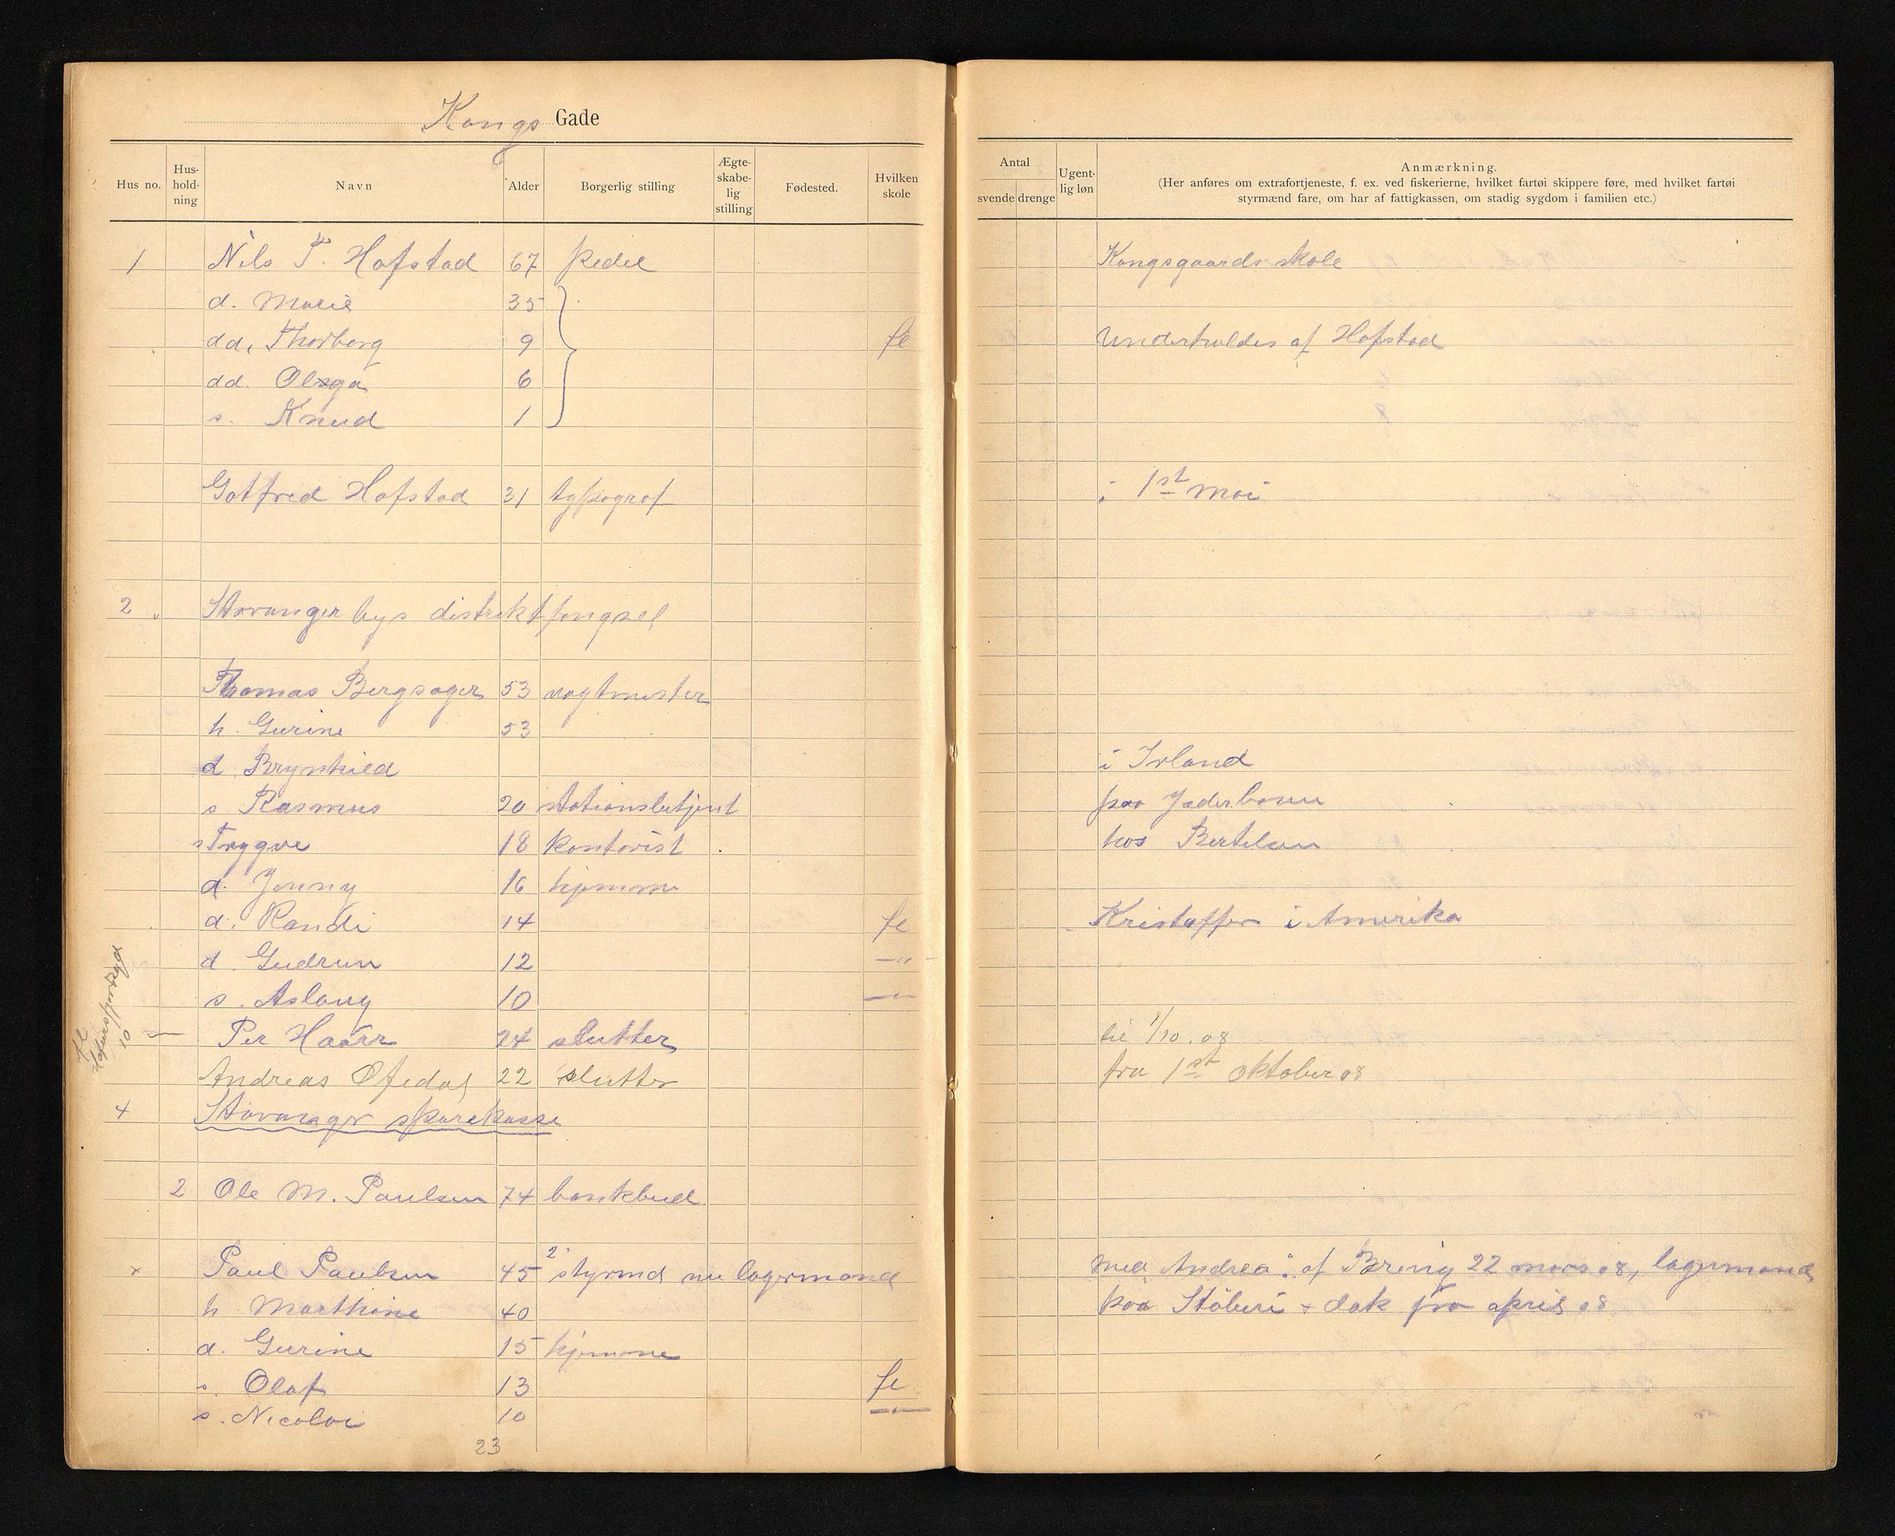 Kongs Gade
Hus no. Hus-hold-ning Navn Alder Borgerlig stilling Ægte-skabe-lig stilling Fødested. Hvilken skole
Antal svende drenge Ugent-lig løn Anmærkning.
(Her anføres om extrafortjeneste, f. ex. ved fiskerierne, hvilket fartøi skippere føre, med hvilket fartøi
styrmænd fare, om har af fattigkassen, om stadig sygdom i familien etc.)
1 Nils T. Hofstad 67 pedel Kongsgaards skole
d. Marie 35
dd. Thorborg 9 fl Underholdes af Hofstad
dd. Olga 6
s. Knud 1
Gotfred Hofstad 31 typograf i 1st mai
2 Stavanger bys distriktfengsel
Thomas Bergsager 53 vagtmester
h. Gurine 53
d Brynhild i Irland
s Rasmus 20 stationsbetjent paa Jæderbanen
s Trygve 18 kontorist hos Bertelsen
d. Jenny 16 hjemme
d. Randi 14 fl Kristoffer i Amerika
d. Gudrun 12 —"—
s. Aslaug 10 —"—
Per Haarr 24 slutter til 1/10. 08
Andreas Øfedal 22 slutter fra 1st oktober 08
4 Stavanger sparekasse
2 Ole M. Paulsen 74 bankbud
x Paul Paulsen 45 2 styrmd nu lagermand med "Andrea" af 22 mars 08, lagermand
h. Marthine 40 paa Støberi + dok fra april 08
d. Gurine 15 hjemme
s. Olaf 13 fl
s. Nicolai 10 —"—
23